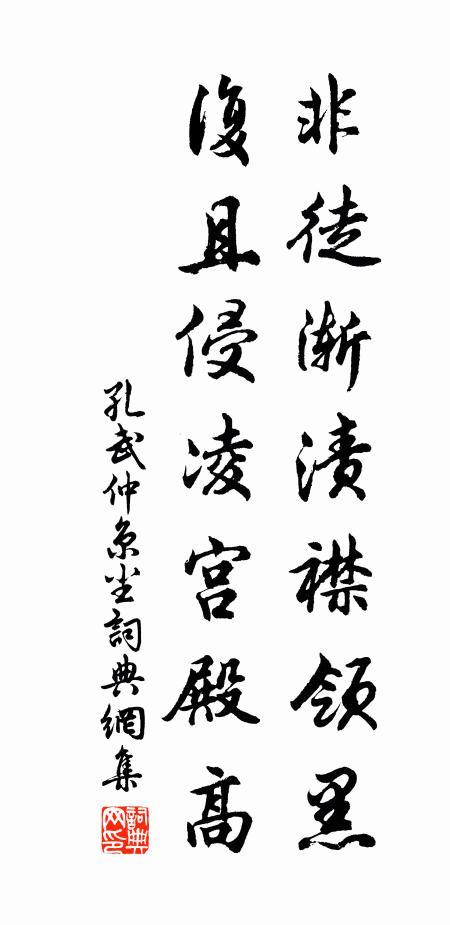 非徒漸漬襟領黑
復且侵凌宮殿高
孔武仲京尘詞典網集
詞典
网印